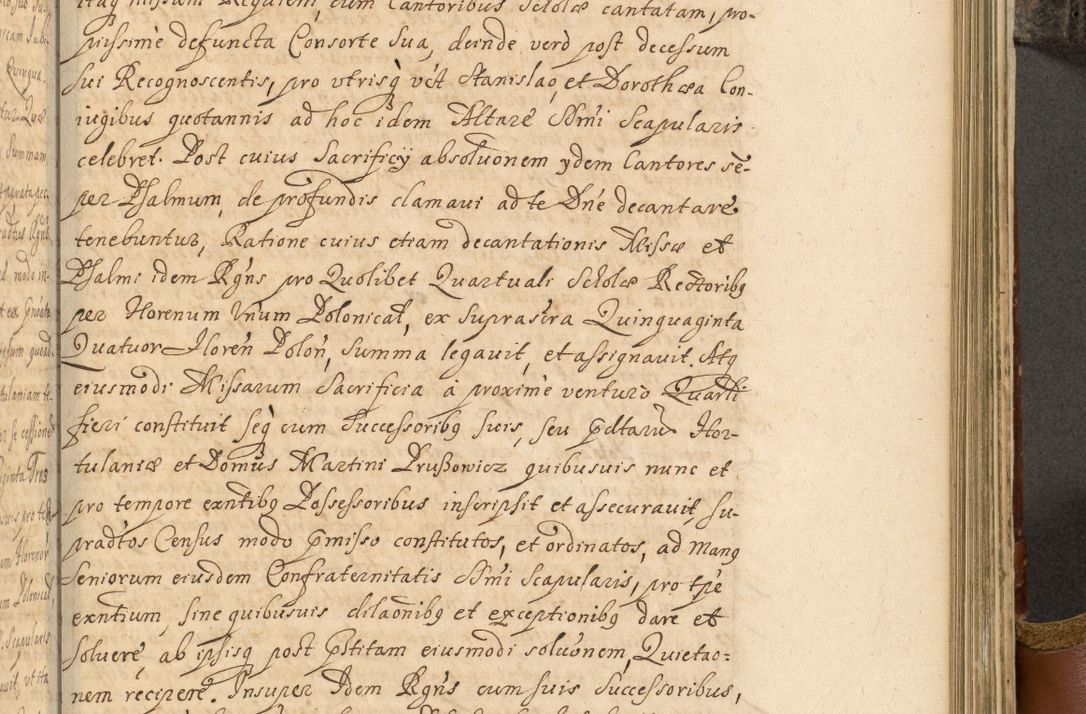 itaq missam Requiem, cum Cantoribus Scholæ cantatam, pro-
pissimè defuncta Consorte Sua, deinde verò post decessum
sui Recognoscentis, pro vtrisq vt Stanislao, et Dorothæa Con-
iugibus quotannis ad hoc idem Altare SSmi Scapularis
celebret. Post cuius Sacrificÿ absoluonem ydem Cantores sē-
per Psalmum, de profundis clamaui ad te Dne decantare
tenebuntur, Ratione cuius etiam decantationis Missæ et
Psalmi idem Rgns pro Quolibet Quartuali Scholæ Rectoribq
per Florenum Vnum Polonical, ex suprascra Quinquaginta
Quatuor Floren Polon, Summa legauit, et assignauit. Atq
eiusmodi Missarum Sacrificia à proximè venturo Quarti
fieri constituit Seq cum Successoribq suis, seu pdtaru Hor-
tulaniæ et Domus Martini Prußowicz quibusuis nunc et
pro tempore exntibq Possessoribus inscripsit et assecurauit, su-
pradtos Census modo pmisso constitutos, et ordinatos, ad manq
seniorum eiusdem Confraternitatis SSmi Scapularis, pro tpe
exntium, sine quibusuis dilaonibq et exceptionibq dare et
soluere, ab ipsisq post pstitam eiusmodi soluonem, Quietao=
nem recipere. Insuper Idem Rgns cum suis Successoribus,